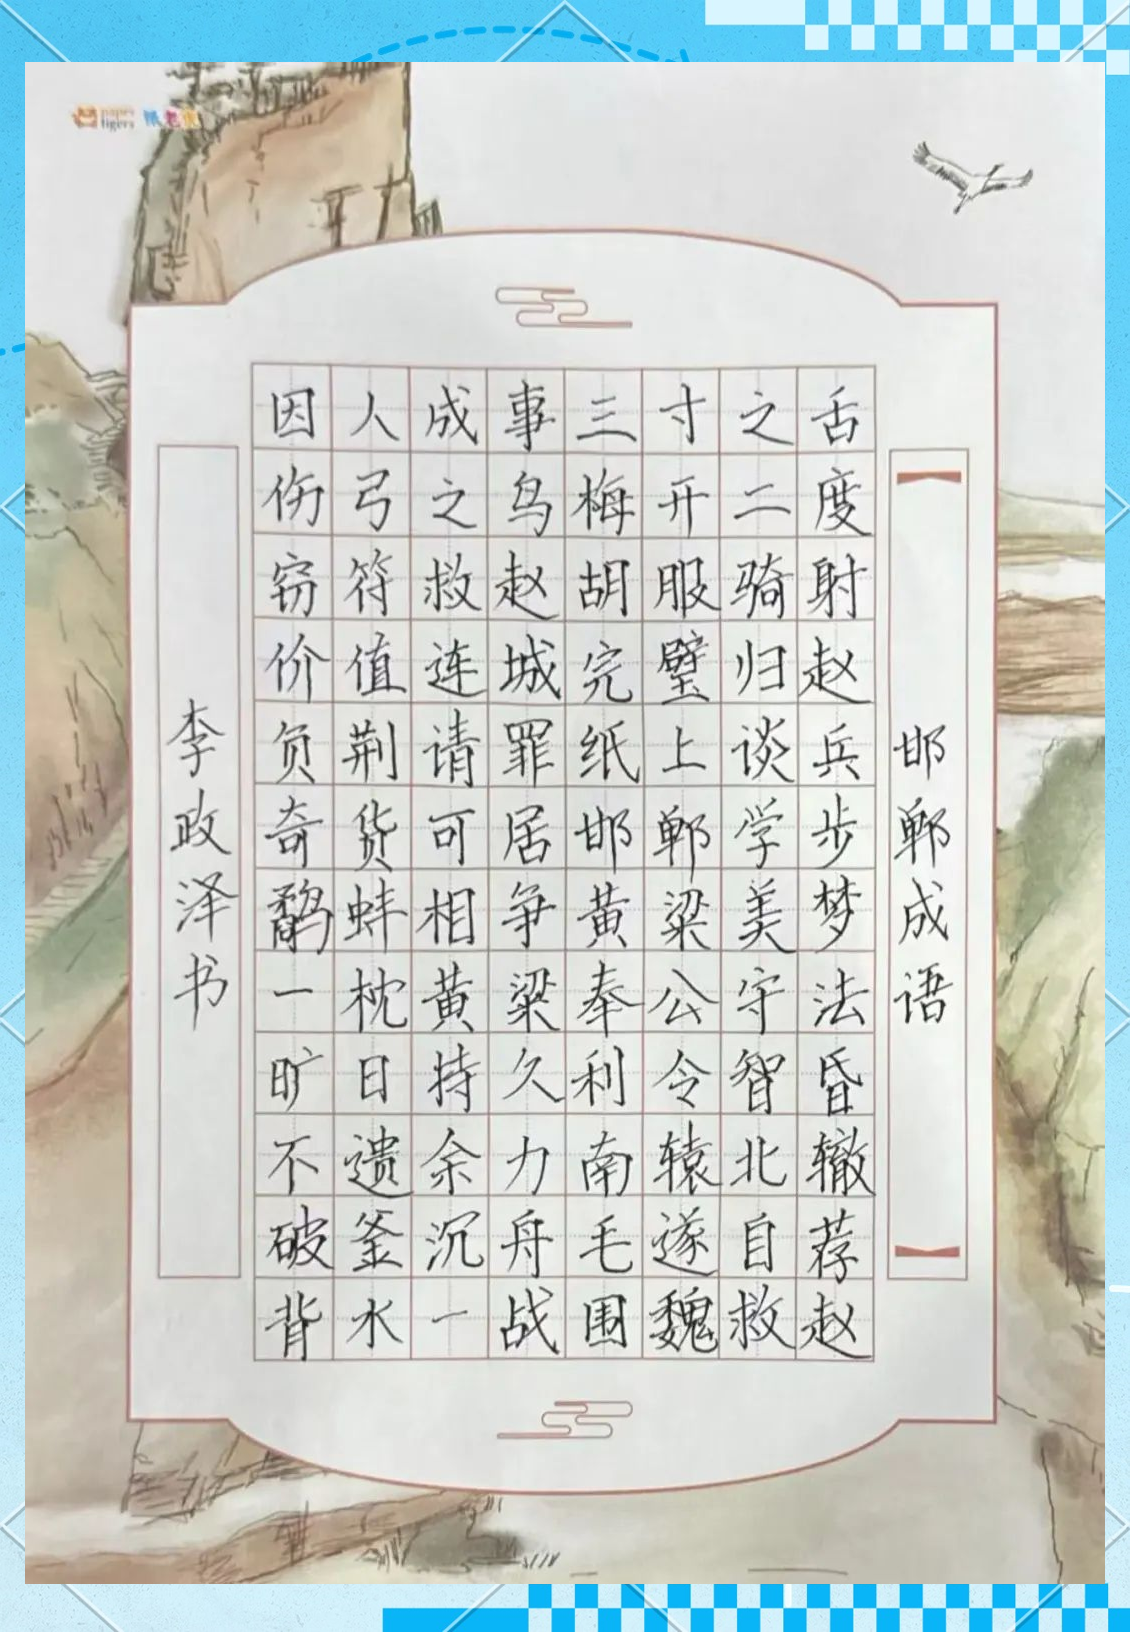 paper tigers 纸老虎
邯郸成语
因人成事三寸之舌
伤弓之鸟梅开二度
窃符救赵胡服骑射
价值连城完璧归赵
负荆请罪纸上谈兵
奇货可居邯郸学步
鹬蚌相争黄粱美梦
一枕黄粱奉公守法
旷日持久利令智昏
不遗余力南辕北辙
破釜沉舟毛遂自荐
背水一战围魏救赵
李政泽书